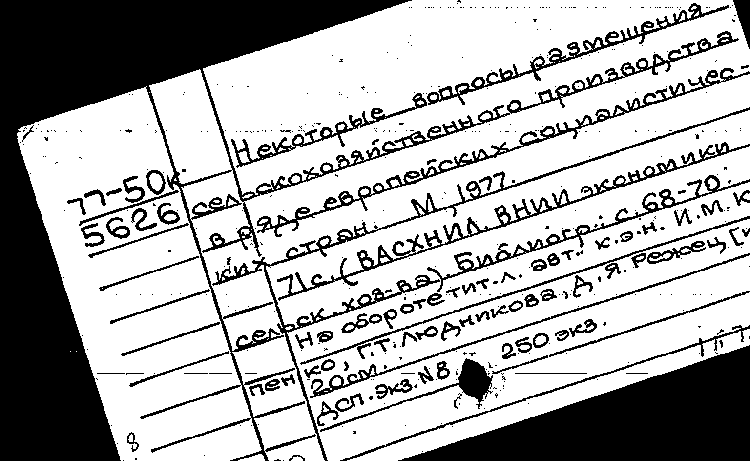 Некоторые вопросы размещения
77-50к сельскохозяйственного производства
5626 в ряде европейских социалистичес-
ких стран. М., 1977.
71с. (ВАСХНИЛ. ВНИИ экономики
сельск. хоз-ва). Библиогр.: с. 68-70.
На обороте тит. л. авт.: к.э.н. И.М. К
пенко, Г.Т. Людникова, Д.Я. Режец [и
20см. 250 экз.
ДСП. экз. N8
8